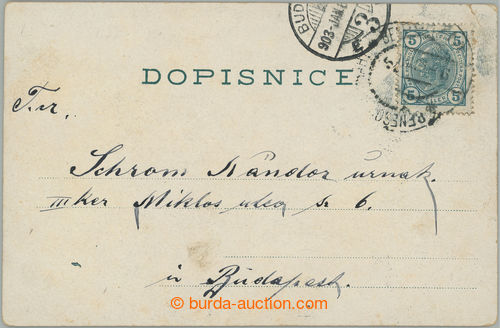 BUD
903 JAN.
3
5 5
5 5
DOPISNICE
T. cz.
Schrom Nándor urnak
III Ker Miklos utca sz 6.
in Budapest.
burda-auction.com